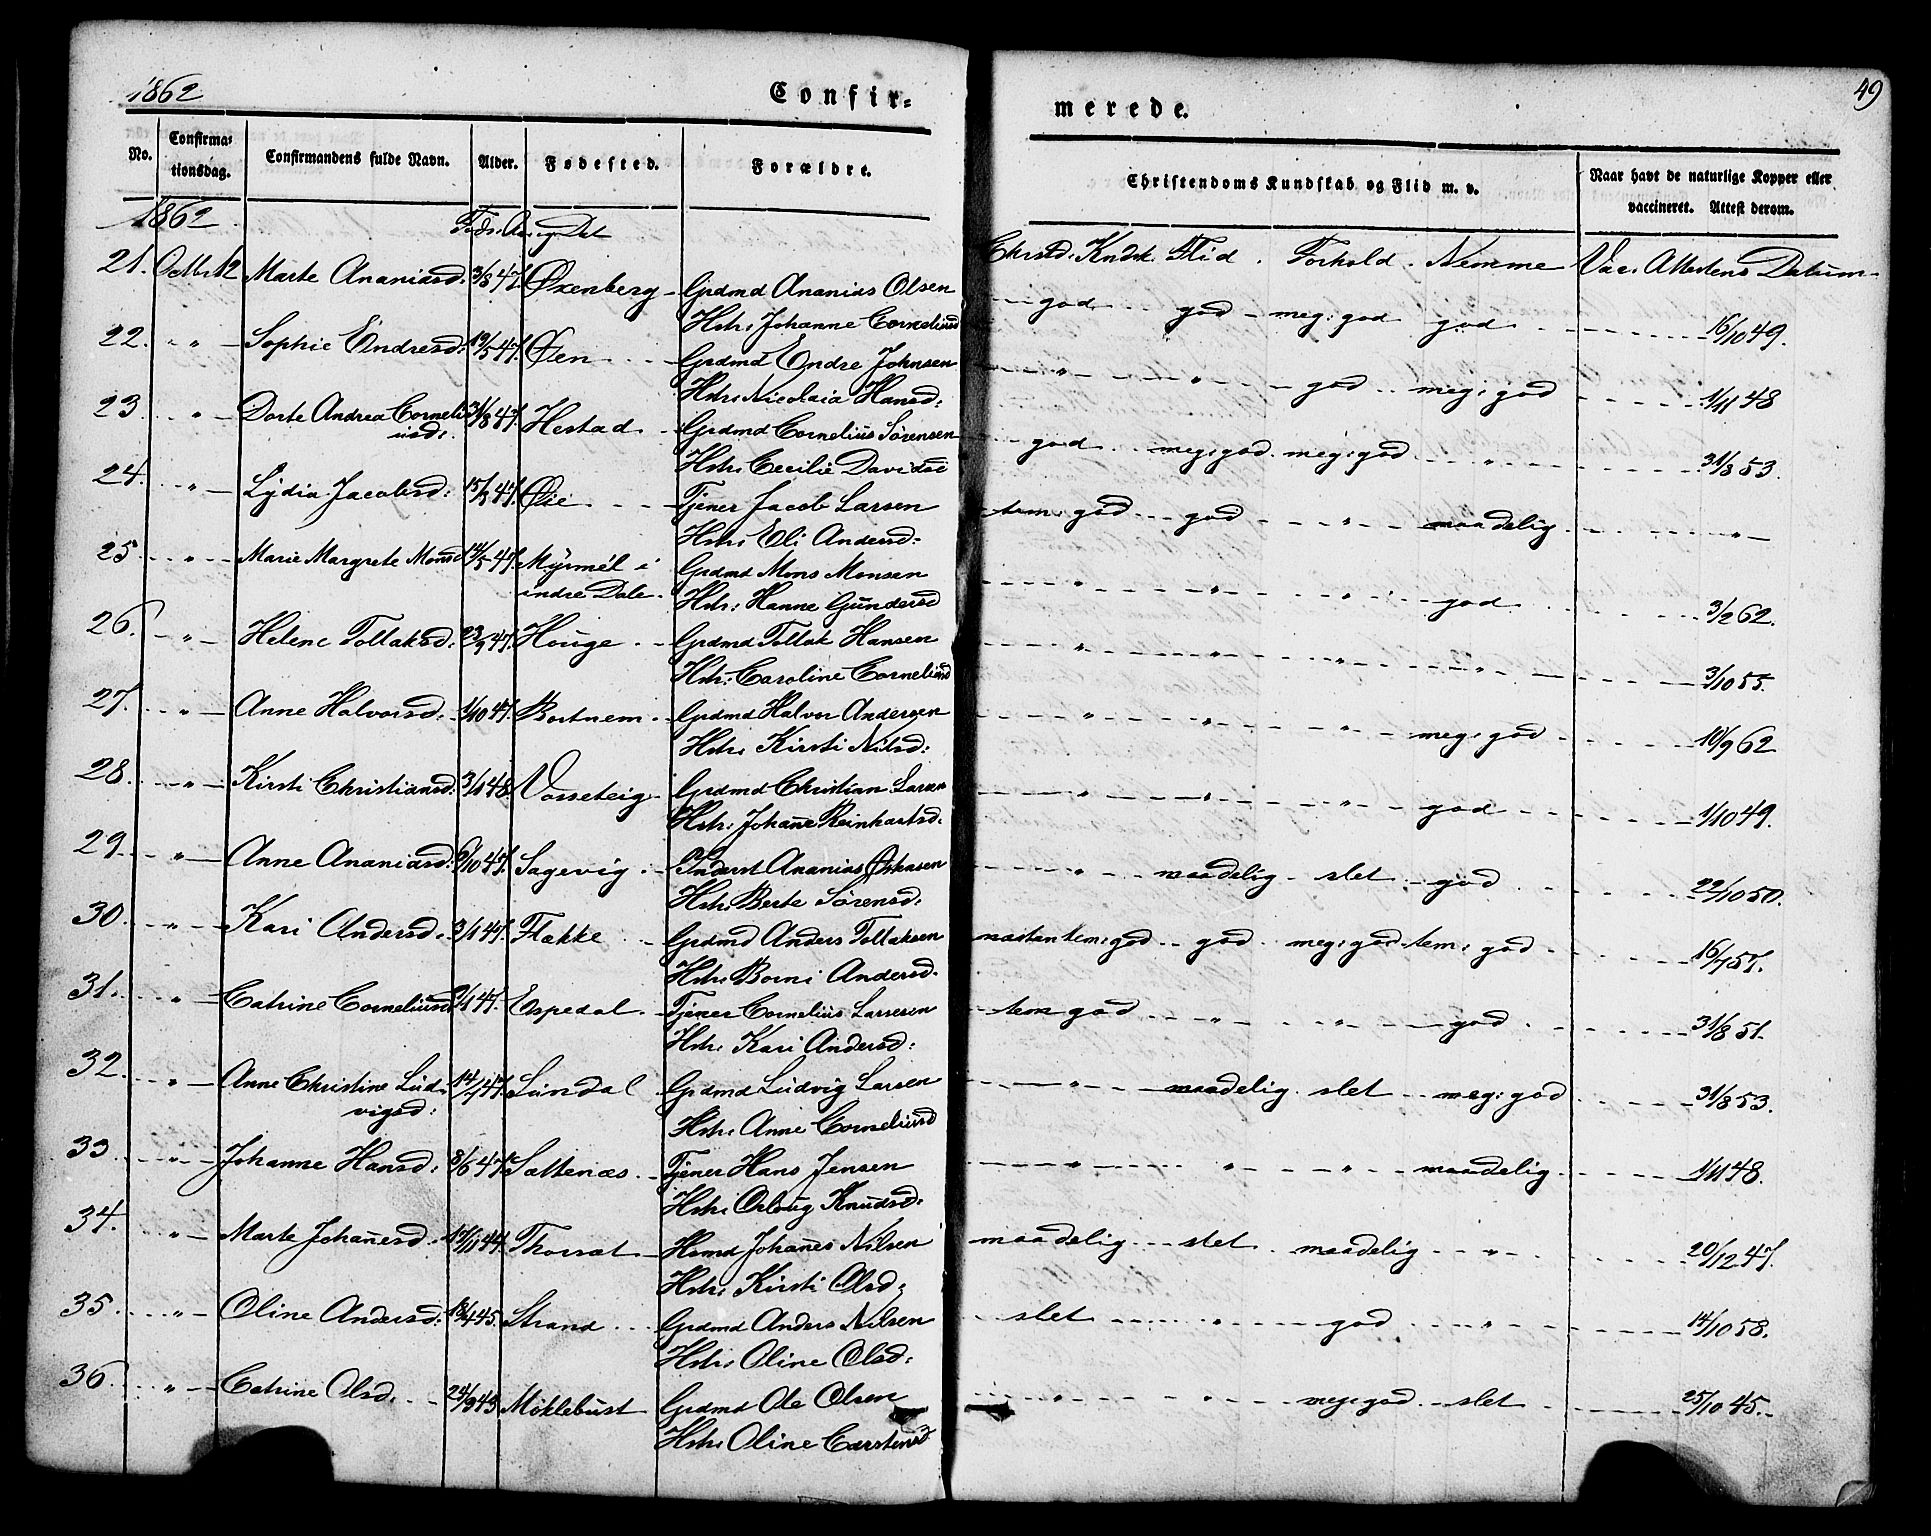 1862
Confir=
No.
Confirma=
tionsdag.
Confirmandens fulde Navn.
Alder.
Fødested.
Forældre.
1862
Føds. Aar og Dat
21. Octbr. 12 Marte Ananiasd. 3/8 47. Øxenberg Grdmd Ananias Olsen
Hstr. Johanne Corneliusd
22. " Sophie Endresd: 19/5 47. Øen Grdmd Endre Johnsen
Hstr: Nicolaia Hansd:
23. " Dorte Andrea Corneli 31/8 47. Hestad Grdmd Cornelius Sørensen
usd:
Hstr: Cecilie Davidsd
24. " Lydia Jacobsd: Øie Tjener Jacob Larsen
Hstr: Eli Andersd:
25. " Marie Margrete Monsd Myrmél i Grdmd Mons Monsen
indre Dale. Hstr: Hanne Gundersd
26. " Helene Tollaksd. 23/9 47. Houge Grdmd Tollak Hansen
Hstr: Caroline Corneliusd
27. " Anne Halvorsd. 1/10 47. Bortnem Grdmd Halvor Andersen
Hstr: Kirsti Nilsd:
28. " Kirsti Christiansd: 3/1 48. Vosseteig Grdmd Christian Larsen
Hstr: Johanne Reinhartsd.
29. " Anne Ananiasd: Sagevig Inderst Ananias
Hstr: Berte Sørensd.
30. " Kari Andersd. 3/1 47. Flekke Grdmd Anders Tollaksen
Hstr: Borni Andersd.
31. " Catrine Corneliusd Espedal Tjener Cornelius Larsen
Hstr: Kari Andersd:
32. " Anne Christine Lud= Lundal Grdmd Ludvig Larsen
vigsd:
Hstr: Anne Corneliusd
33. " Johanne Hansd: 8/6 47. Sættenæs Tjener Hans Jensen
Hstr: Knudsd:
34. " Marte Johanesd. Hsmd Johanes Nilsen
Hstr: Kirsti Olsd:
35. " Oline Andersd: 18/4 45. Strand Grdmd Anders Nilsen
Hstr: Oline Olsd:
36. " Catrine Olsd. 24/9 45 Möklebust Grdmd Ole Olsen
Hstr: Oline Carstensd
49
merede.
Christendoms Kundskab og Flid m. v.
Naar havt de naturlige Kopper eller
vaccineret. Attest derom.
Christd. Kndsk. Flid. Forhold. Nemme Vac. Attestens Datum
god god meg: god god 16/10 49.
" " god meg: god 1/11 48
god meg: god meg: god " 31/8 53.
tem: god god " maadelig "
" " " god 3/2 62.
" " " " 3/10 55.
" " meg: god 10/9 62
" " " god 1/10 49.
" maadelig slet god 22/10 50.
næsten tem: god god meg: god tem: god 16/7 57.
tem god " " god 31/8 51.
" maadelig slet meg: god 31/8 53.
" " " maadelig 1/11 48.
maadelig slet maadelig " 20/12 47.
slet " god " 14/10 58.
" " meg: god slet 25/10 45.